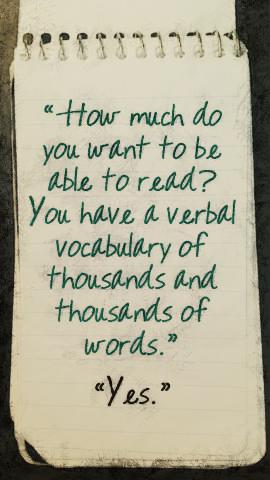 “How much do
you want to be
able to read?
You have a verbal
vocabulary of
thousands and
thousands of
words.”
“Yes.”